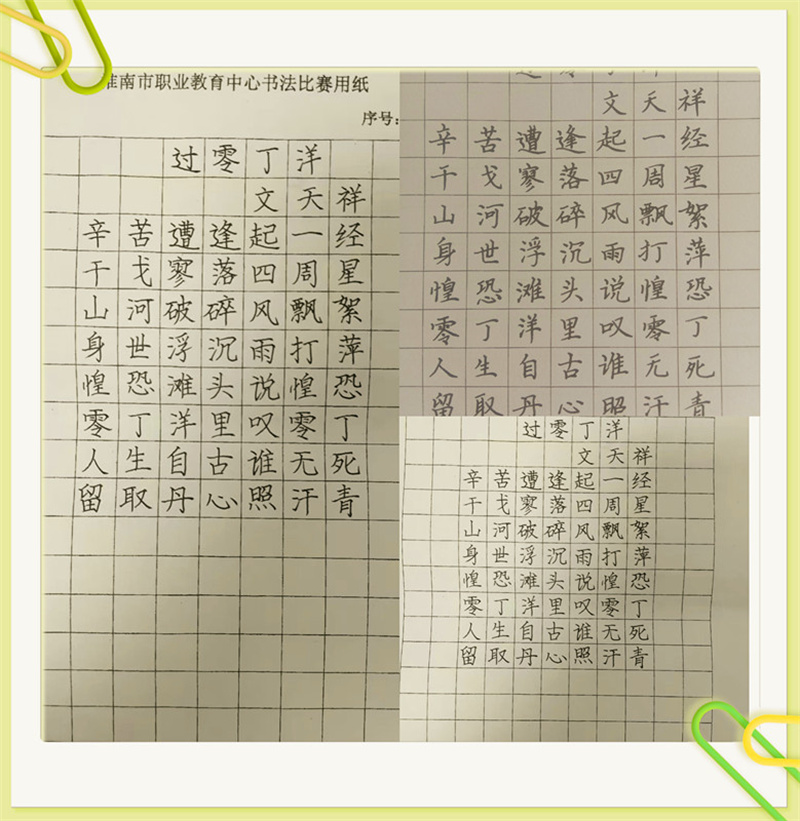 淮南市职业教育中心书法比赛用纸
序号:
过零丁洋
文天祥
辛苦遭逢起一经
干戈寥落四周星
山河破碎风飘絮
身世浮沉雨打萍
惶恐滩头说惶恐
零丁洋里叹零丁
人生自古谁无死
留取丹心照汗青
文天祥
辛苦遭逢起一经
干戈寥落四周星
山河破碎风飘絮
身世浮沉雨打萍
惶恐滩头说惶恐
零丁洋里叹零丁
人生自古谁无死
留取丹心照汗青
过零丁洋
文天祥
辛苦遭逢起一经
干戈寥落四周星
山河破碎风飘絮
身世浮沉雨打萍
惶恐滩头说惶恐
零丁洋里叹零丁
人生自古谁无死
留取丹心照汗青